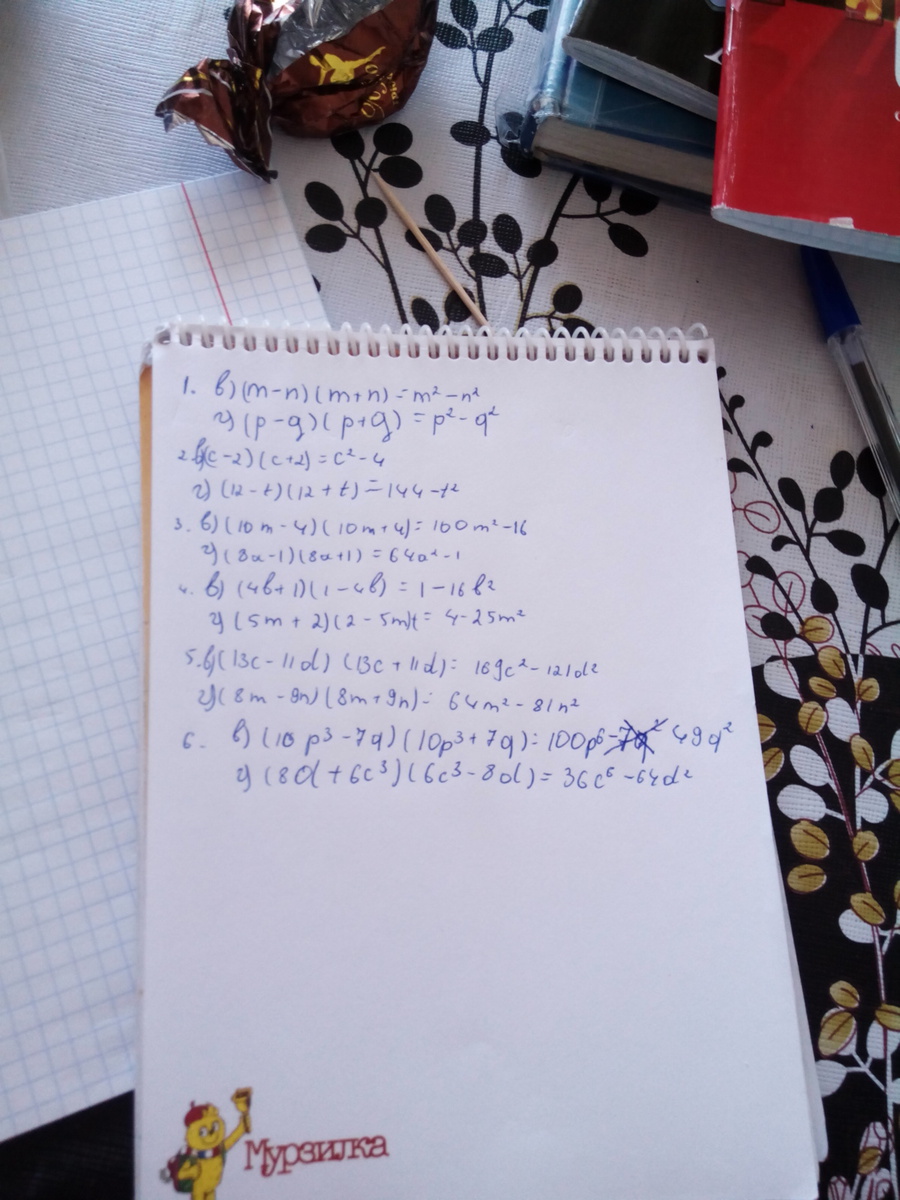 1. в) (m-n)(m+n)=m²-n²
г) (p-q)(p+q)=p²-q²
2. в) (c-2)(c+2)=c²-4
г) (12-t)(12+t)=144-t²
3. в) (10m-4)(10m+4)=100m²-16
г) (8a-1)(8a+1)=64a²-1
4. в) (4b+1)(1-4b)=1-16b²
г) (5m+2)(2-5m)=4-25m²
5. в) (13c-11d)(13c+11d)=169c²-121d²
г) (8m-9n)(8m+9n)=64m²-81n²
6. в) (10p³-7q)(10p³+7q)=100p⁶-49q²
г) (8d+6c³)(6c³-8d)=36c⁶-64d²
Мурзилка